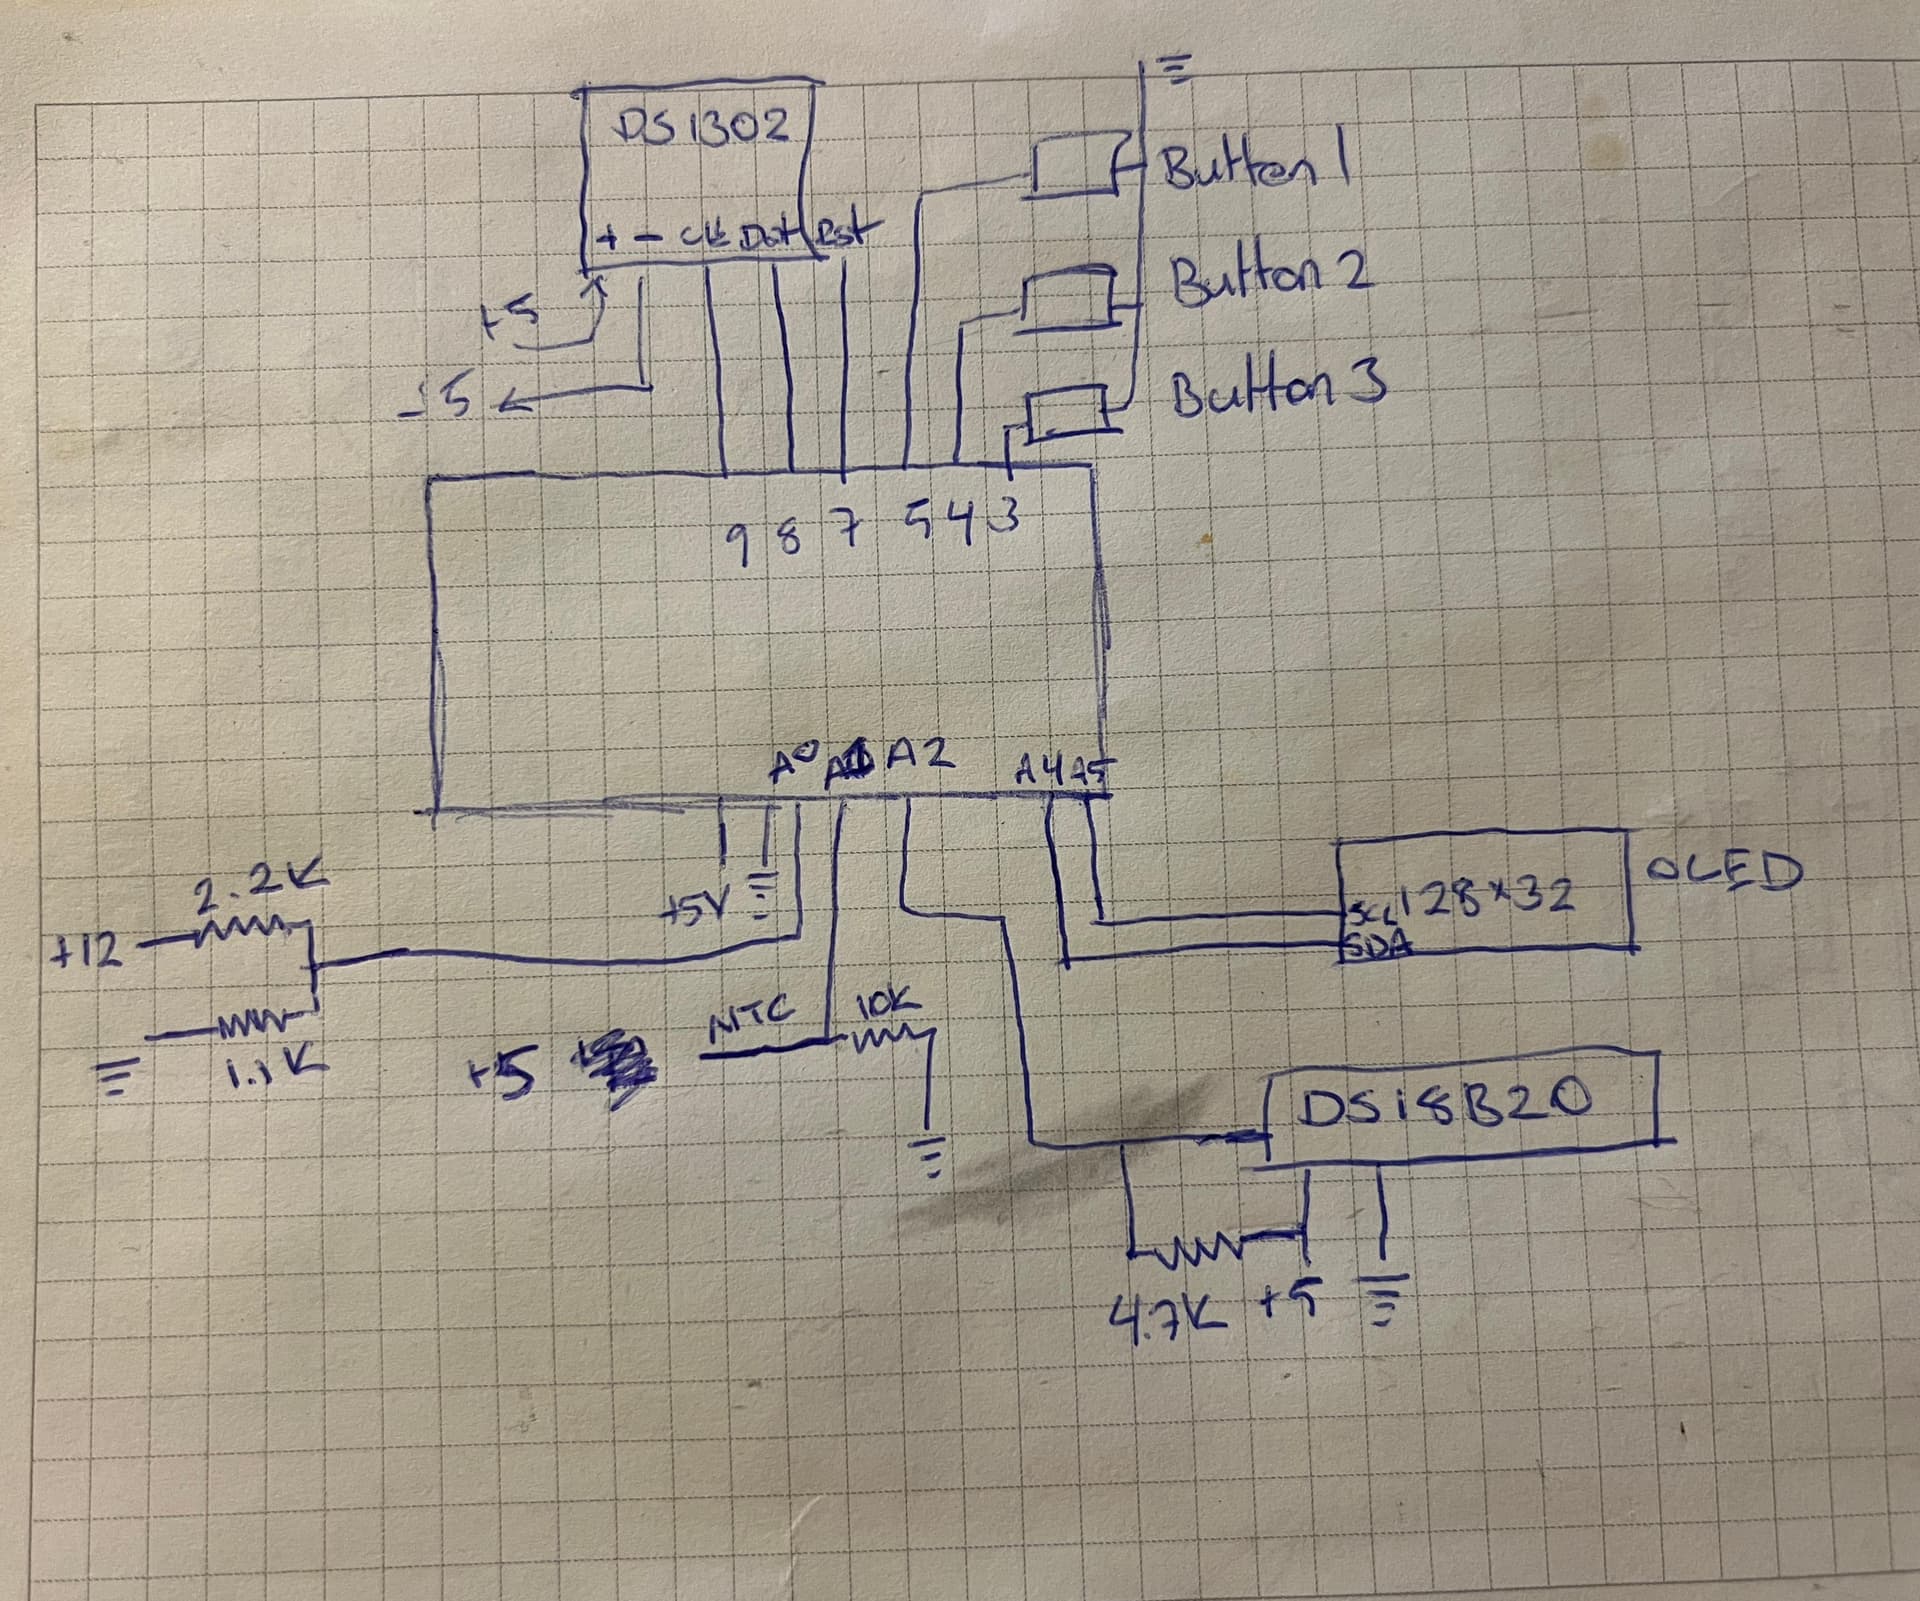 DS1302
+ - CLK Dat Rst
+5
-5
Button 1
Button 2
Button 3
9 8 7 5 4 3
A0 A1 A2 A4 A5
+5V
2.2K
+12
1.1K
NTC
10K
+5
OLED
128x32
SCL
SDA
DS18B20
4.7K
+5